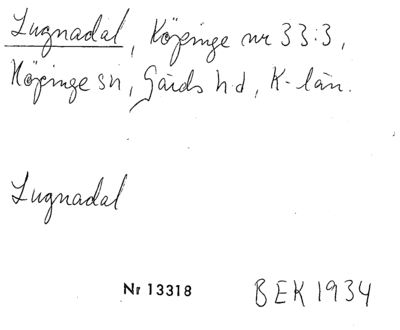 Lugnadal, Köpinge nr 33:3,
Köpinge sn, Gärds h.d, K-län.
Lugnadal
Nr 13318 BEK 1934